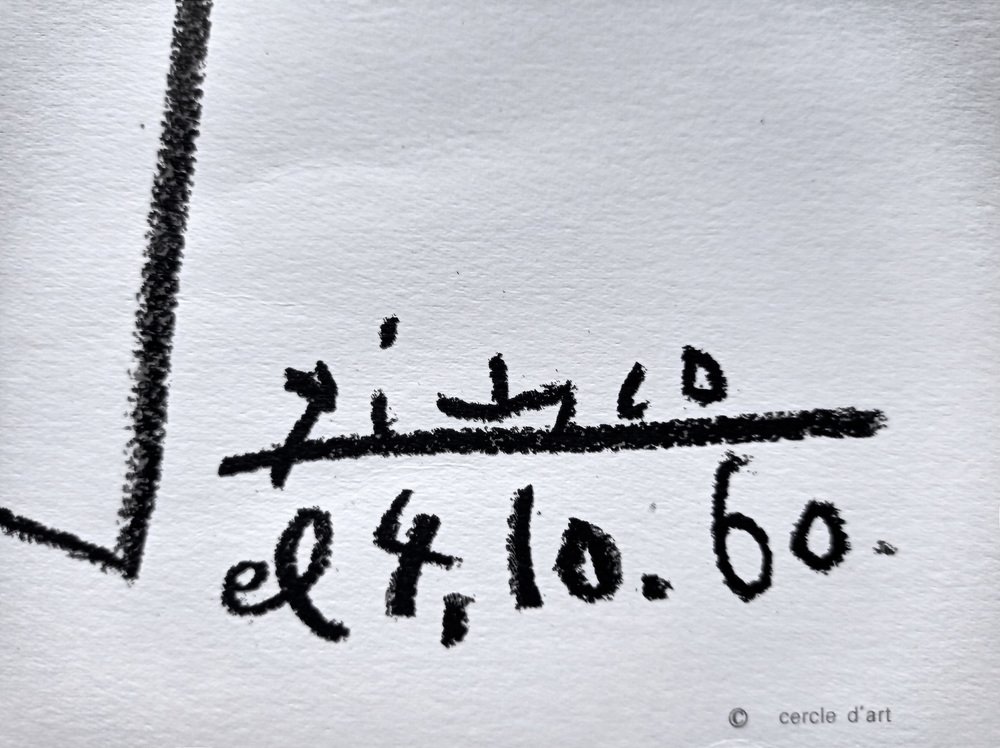 el 4,10.60.
© cercle d'art